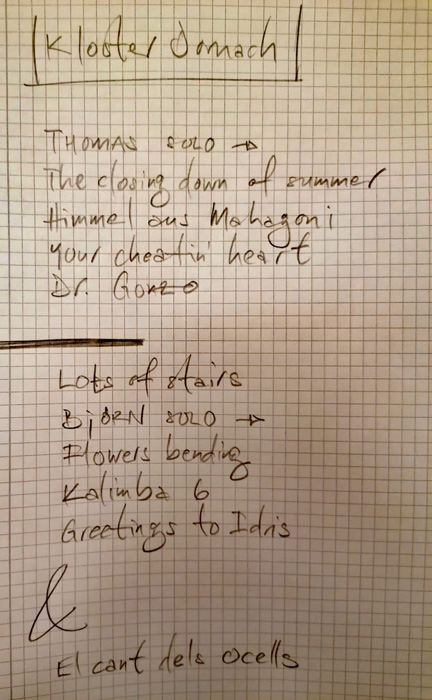 Kloster Dornach
THOMAS SOLO →
The closing down of summer
Himmel aus Mahagoni
your cheatin' heart
Dr. Gonzo
Lots of stairs
BjØRN SOLO →
Flowers bending
Kalimba 6
Greetings to Idris
&
El cant dels ocells